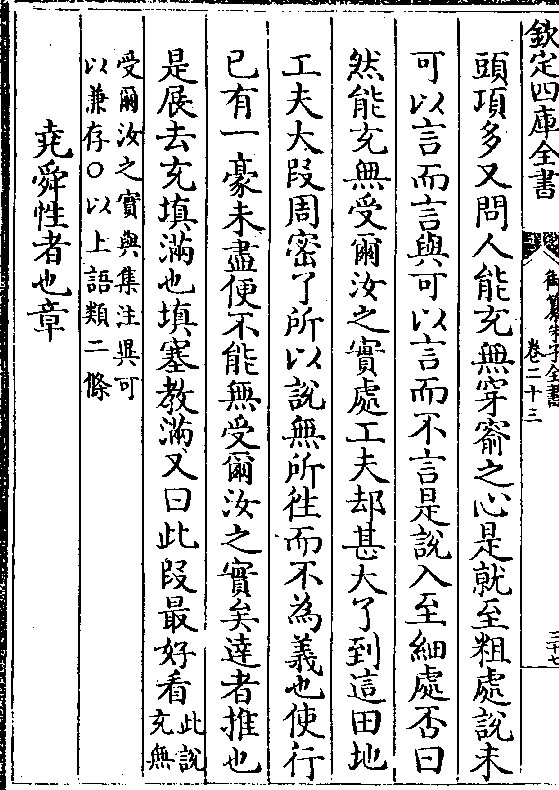 欽定四庫全書
御纂朱子全書
卷二十三
三十七
頭項多又問人能充無穿窬之心是就至粗處說未
可以言而言與可以言而不言是說入至細處否曰
然能充無受爾汝之實處工夫却甚大了到這田地
工夫大段周密了所以說無所徃而不為義也使行
已有一豪未盡便不能無受爾汝之實矣達者推也
是展去充填滿也填塞教滿又曰此段最好看此說
充無
受爾汝之實與集注異可
以兼存○以上語類二條
堯舜性者也章